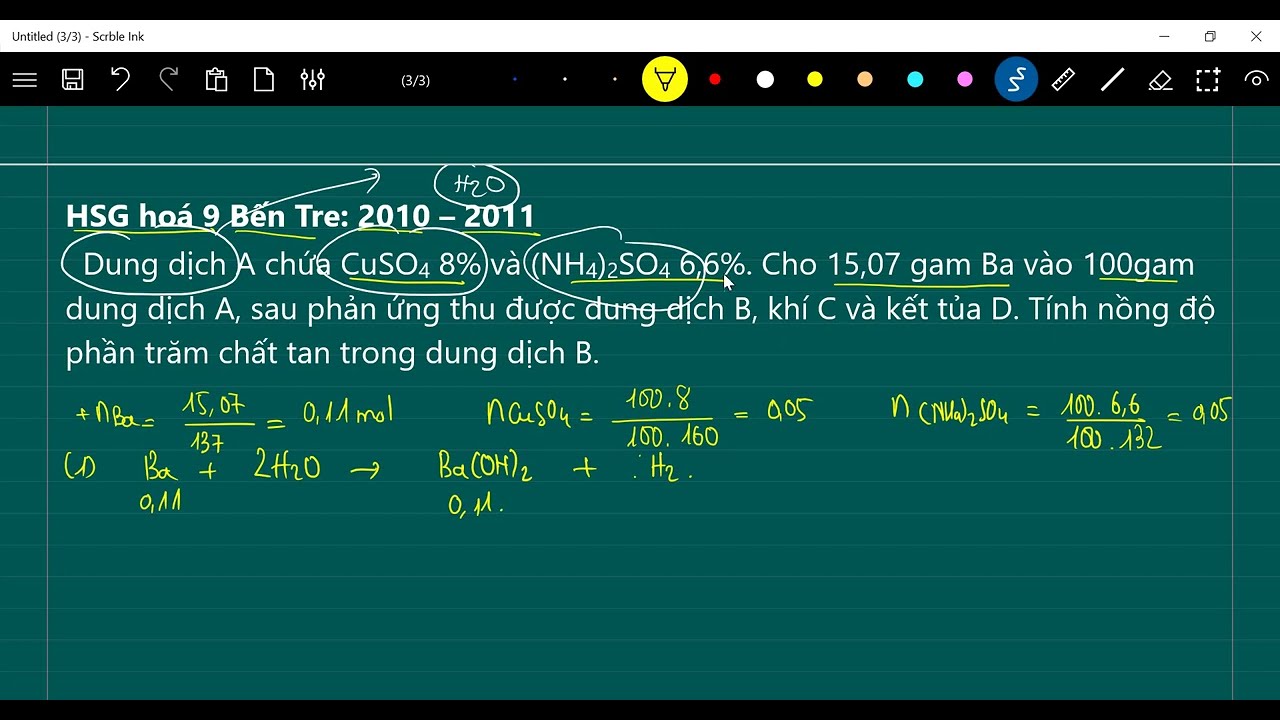 Untitled (3/3) - Scrble Ink
(3/3)
H2O
HSG hoá 9 Bến Tre: 2010 – 2011
Dung dịch A chứa CuSO₄ 8% và (NH₄)₂SO₄ 6,6%. Cho 15,07 gam Ba vào 100gam
dung dịch A, sau phản ứng thu được dung dịch B, khí C và kết tủa D. Tính nồng độ
phần trăm chất tan trong dung dịch B.
+ nBa = 15,07 / 137 = 0,11 mol nCuSO4 = 100.8 / 100.160 = 0,05 n(NH4)2SO4 = 100.6,6 / 100.132 = 0,05
(1) Ba + 2H2O → Ba(OH)2 + H2
0,11 0,11.